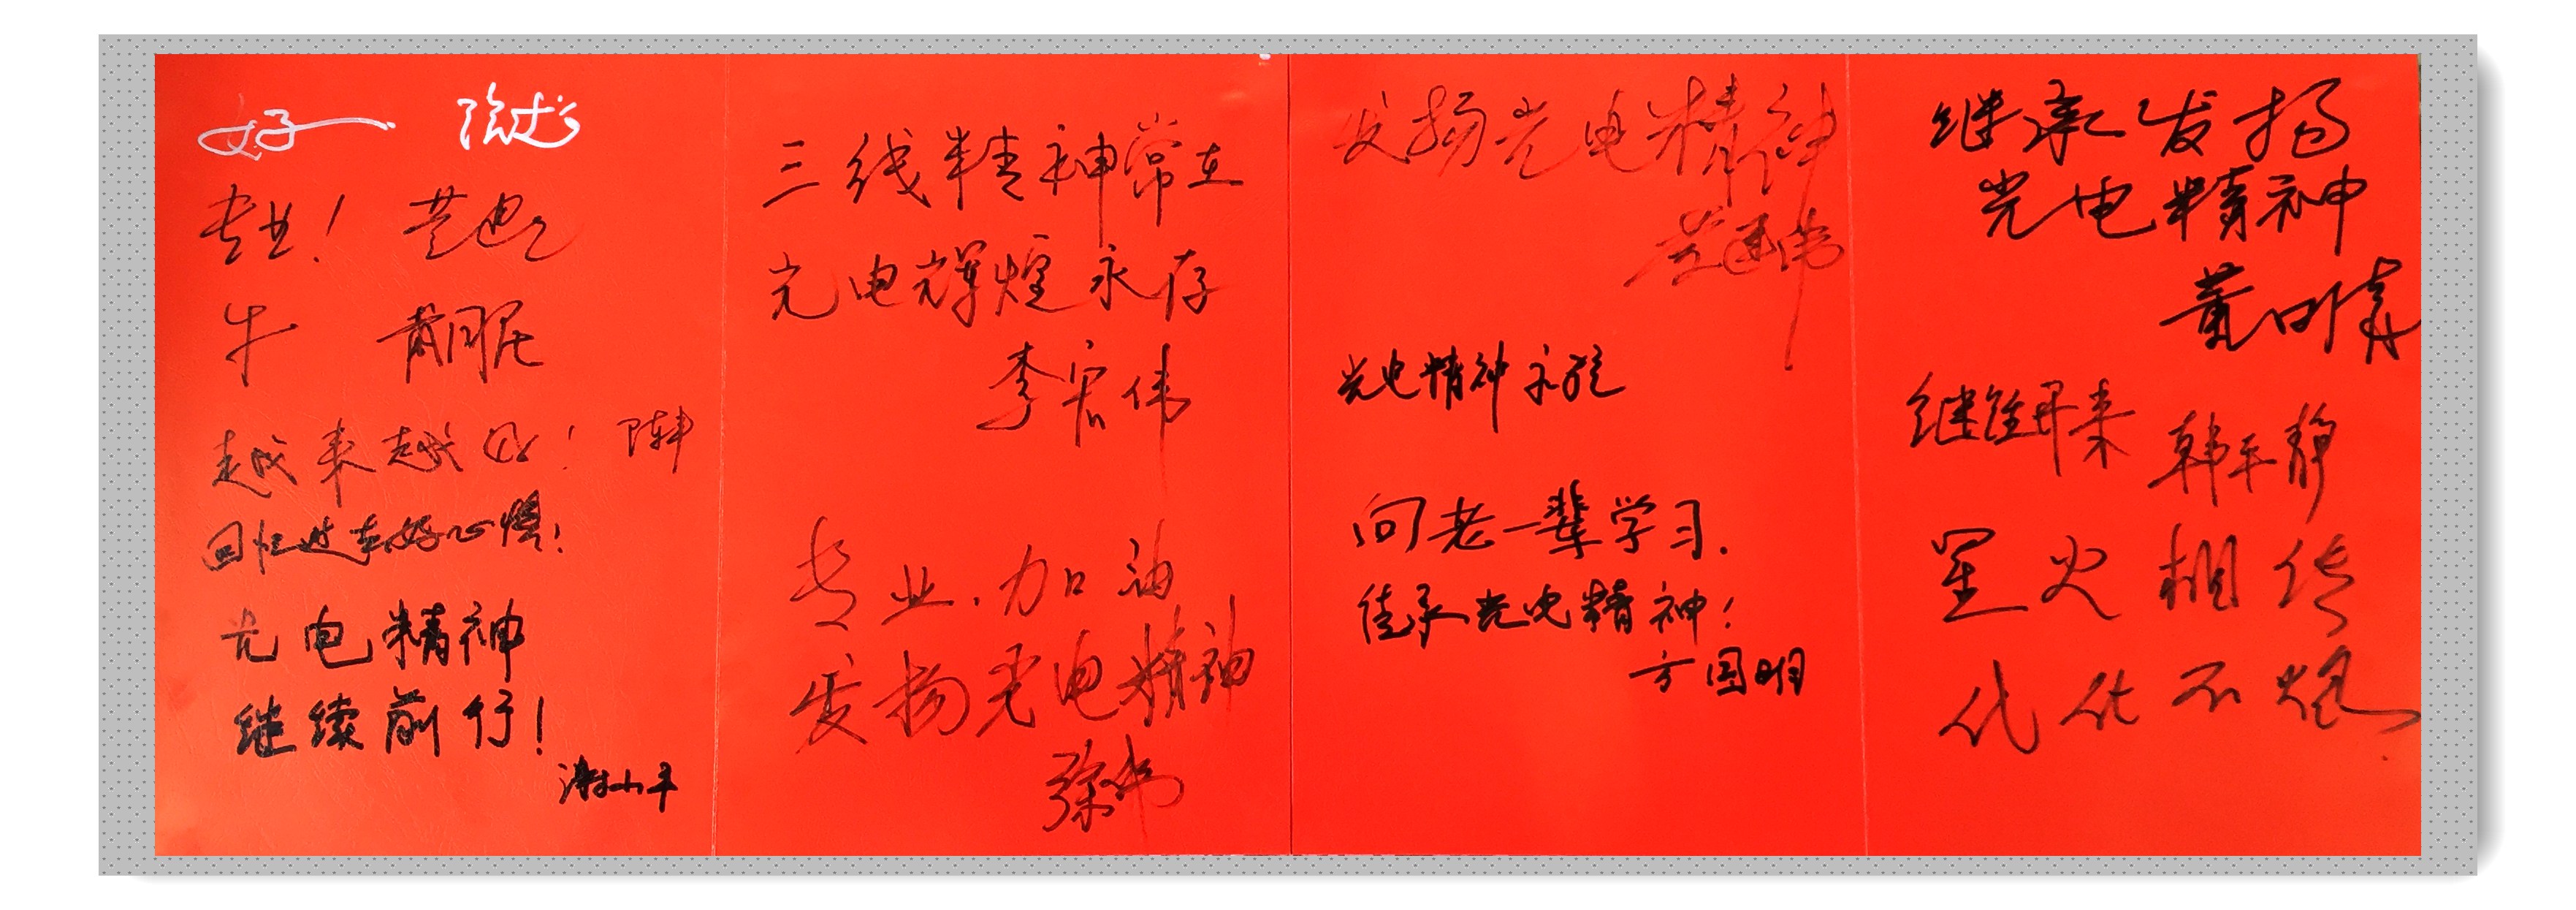 好
专业！
牛
越来越好！
回忆过去好心情！
光电精神
继续前行！
谢小平
三线精神常在
光电辉煌永存
李宏伟
专业、加油
发扬光电精神
发扬光电精神
光电精神永驻
向老一辈学习.
传承光电精神！
方国明
继承发扬
光电精神
继往开来 韩平静
星火相传
代代不熄